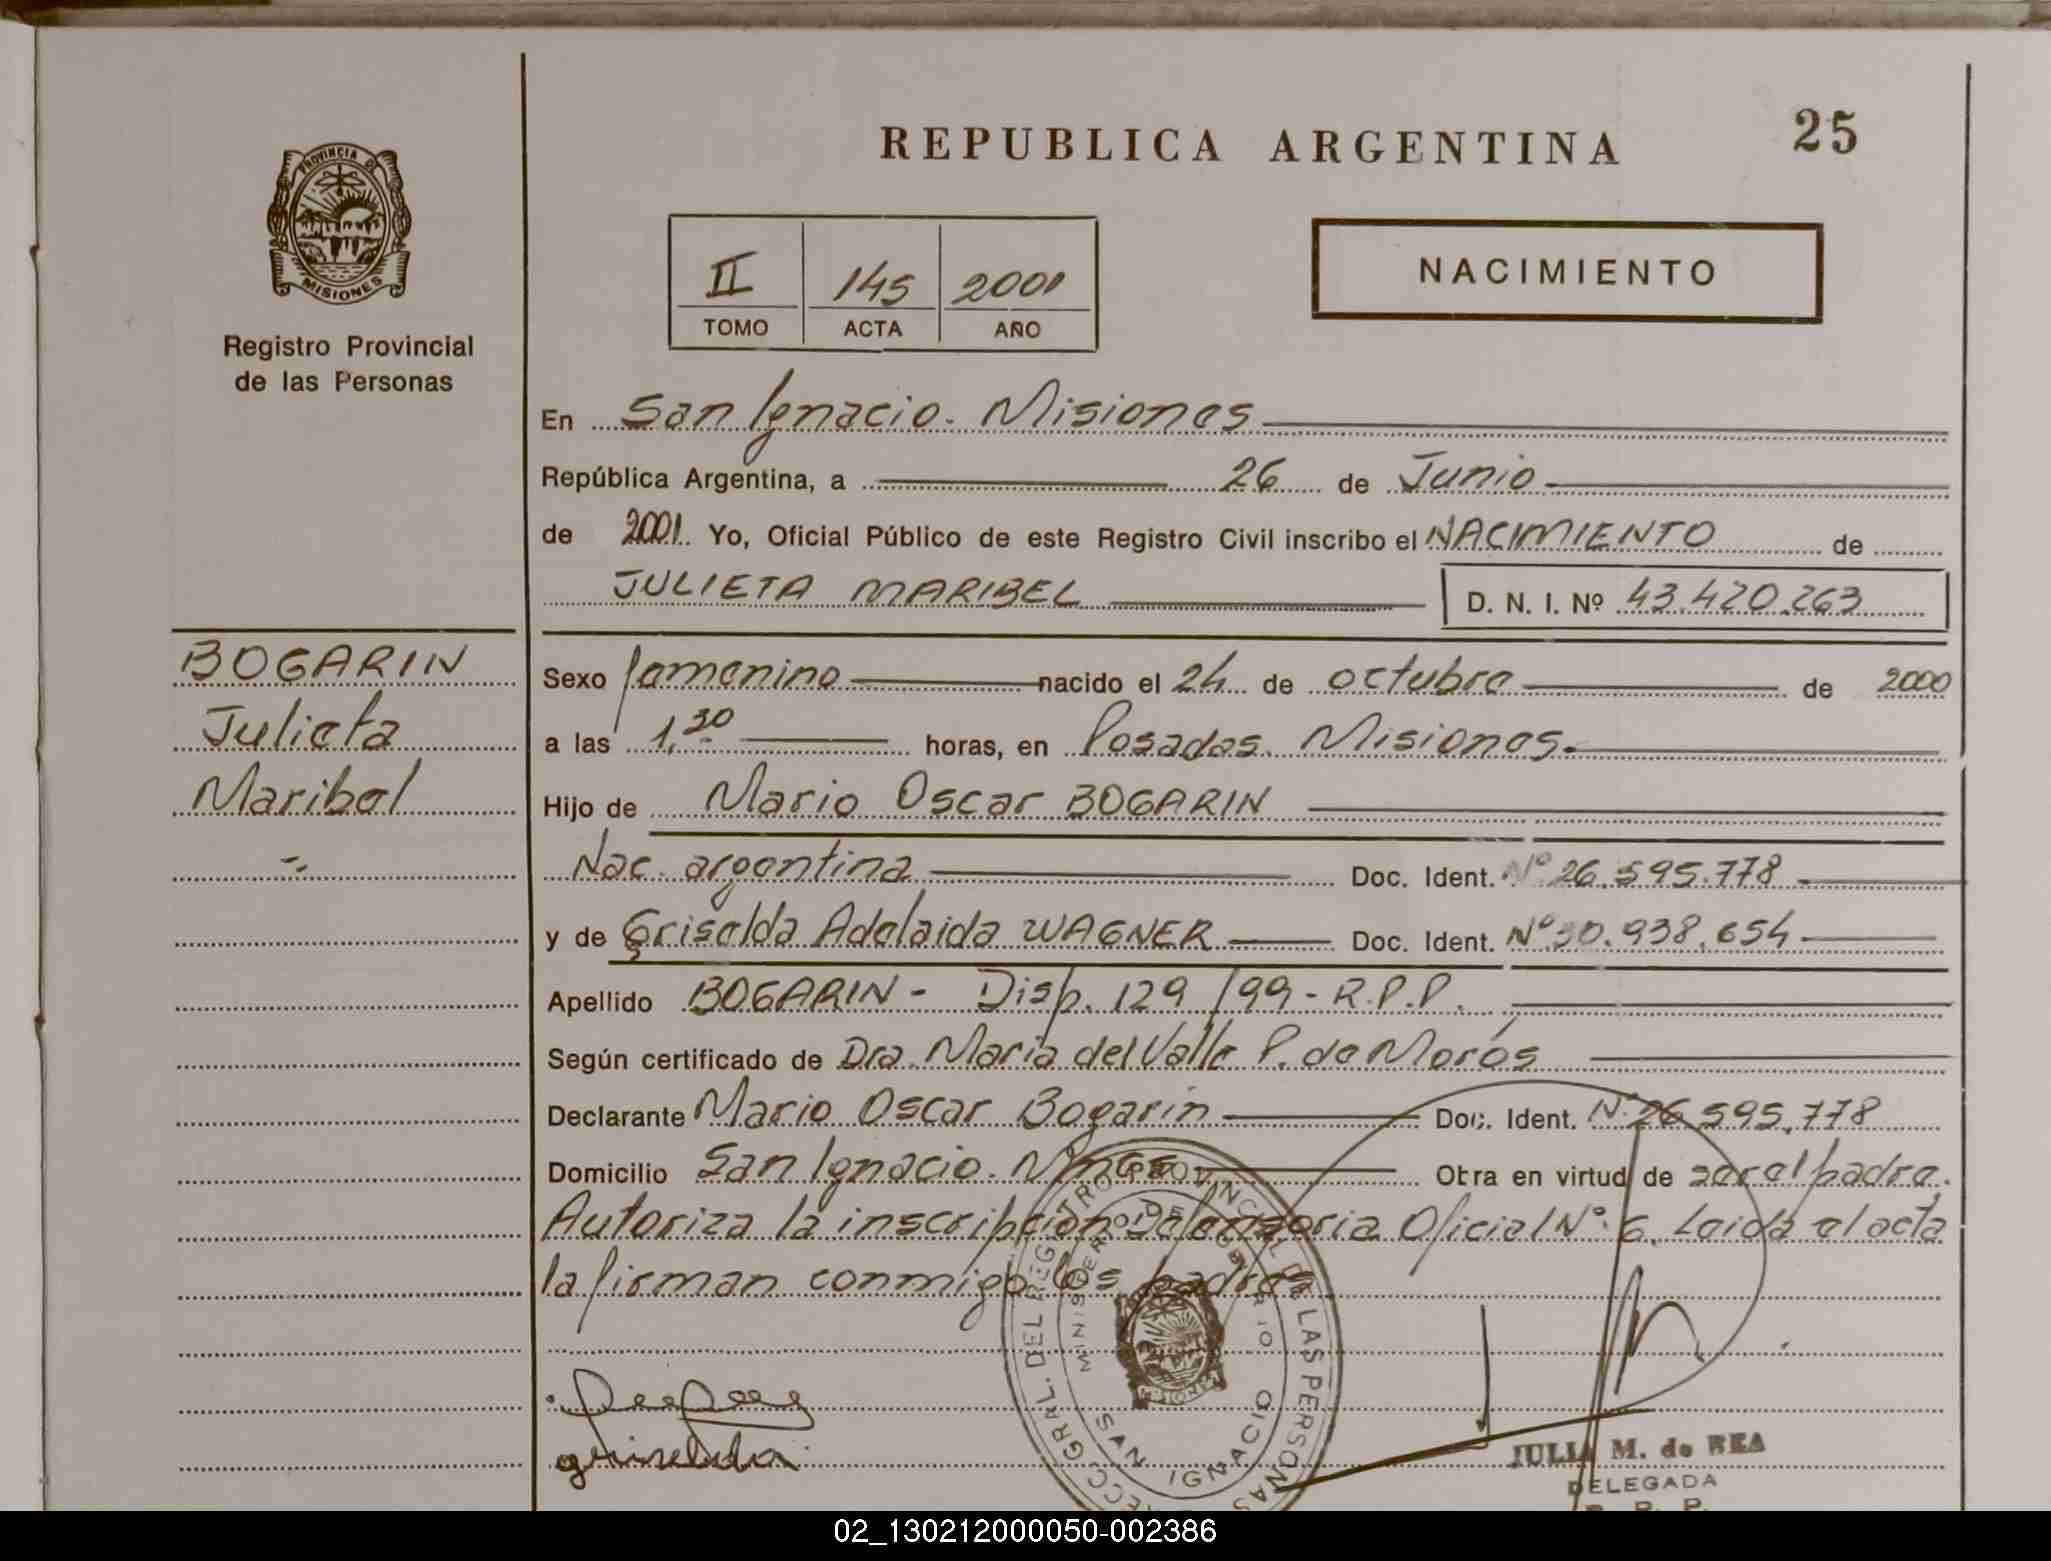 REPUBLICA ARGENTINA
25
PROVINCIA DE
MISIONES
Registro Provincial
de las Personas
II 145 2001
TOMO ACTA AÑO
NACIMIENTO
En San Ignacio. Misiones
República Argentina, a 26 de Junio
de 2001. Yo, Oficial Público de este Registro Civil inscribo el NACIMIENTO de
JULIETA MARIBEL D. N. I. Nº 43.420.263
BOGARIN
Julieta
Maribel
Sexo femenino nacido el 24 de octubre de 2000
a las 1,30 horas, en Posadas. Misiones.
Hijo de Mario Oscar BOGARIN
Nac. argentina Doc. Ident. Nº 26.595.778
y de Griselda Adelaida WAGNER Doc. Ident. Nº 30.938.654
Apellido BOGARIN - Disp. 129/99 - R.P.P.
Según certificado de Dra. Maria del Valle P. de Morós
Declarante Mario Oscar Bogarin Doc. Ident. Nº 26.595.778
Domicilio San Ignacio. Mnes Obra en virtud de ser el padre.
Autoriza la inscripción Defensoria Oficial Nº 6. Leida el acta
la firman conmigo los padres
griselda
DIRECC. GRAL. DEL REGISTRO PROVINCIAL DE LAS PERSONAS
MINISTERIO DE GOBIERNO
SAN IGNACIO
MISIONES
JULIA M. de REA
DELEGADA
R. P. P.
02_130212000050-002386